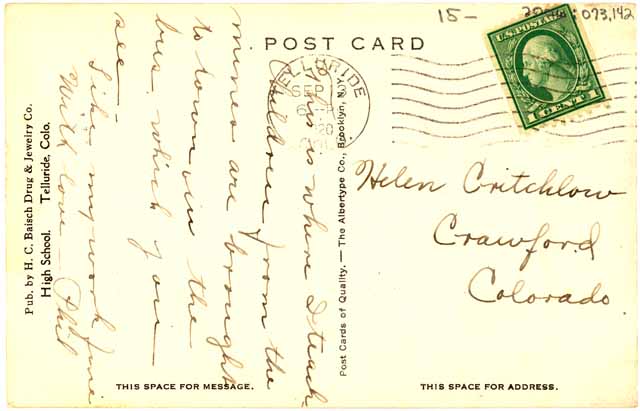 15— 2000:073,142
POST CARD
U.S. POSTAGE
1 CENT 1
TELLURIDE
SEP
20
COLO.
This is where I teach
Children from the
mines are brought
to town in the
bus which you
see—
Like my work fine.
With love— Phil
Helen Critchlow
Crawford
Colorado
Pub. by H. C. Baisch Drug & Jewelry Co.
High School. Telluride, Colo.
Post Cards of Quality. — The Albertype Co., Brooklyn, N.Y.
THIS SPACE FOR MESSAGE.
THIS SPACE FOR ADDRESS.